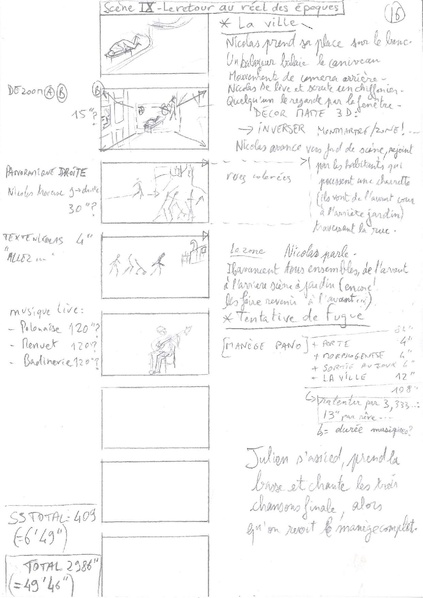 Scène IX - Le retour au réel des époques
16
* La ville
Nicolas prend sa place sur le banc.
Un balayeur balaie le caniveau
Mouvement de camera arrière.
Nicolas se lève et un chiffonier.
Quelqu'un le regarde par la fenêtre.
DÉCOR MATTE 3D:
→ INVERSER MONTMARTRE/ZONE!...
Nicolas avance vers fond de scène, rejoint
par les habitants qui
poussent une charrette
(ils vont de l'avant cour
à l'arrière jardin)
traversent la rue.
DÉZOOM A B
B
15"?
PANORAMIQUE DROITE
Nicolas traverse g→droite
30"?
rôles inversés
TEXTE NICOLAS 4"
"ALLEZ..."
La zone Nicolas parle.
Ils avancent tous ensembles de l'avant
à l'arrière scène à jardin (encore!
les faire revenir à l'avant...)
* Tentative de Fugue
musique live:
- Polonaise 120"?
- Menuet 120"?
- Badinerie 120"?
[MANÈGE PANO]
+ ARTE 4"
+ MORPHOGENÈSE 4"
+ 4"
- LA VILLE 12"
108"
ralenter par 3,333...:
13" par rêve...
↳ = durée musiques?
Julien s'assied, prend la
brosse et chante les trois
chansons finale, alors
qu'on revoit le manège complet.
SS TOTAL: 409
(= 6'49")
TOTAL 2986"
(= 49'46")